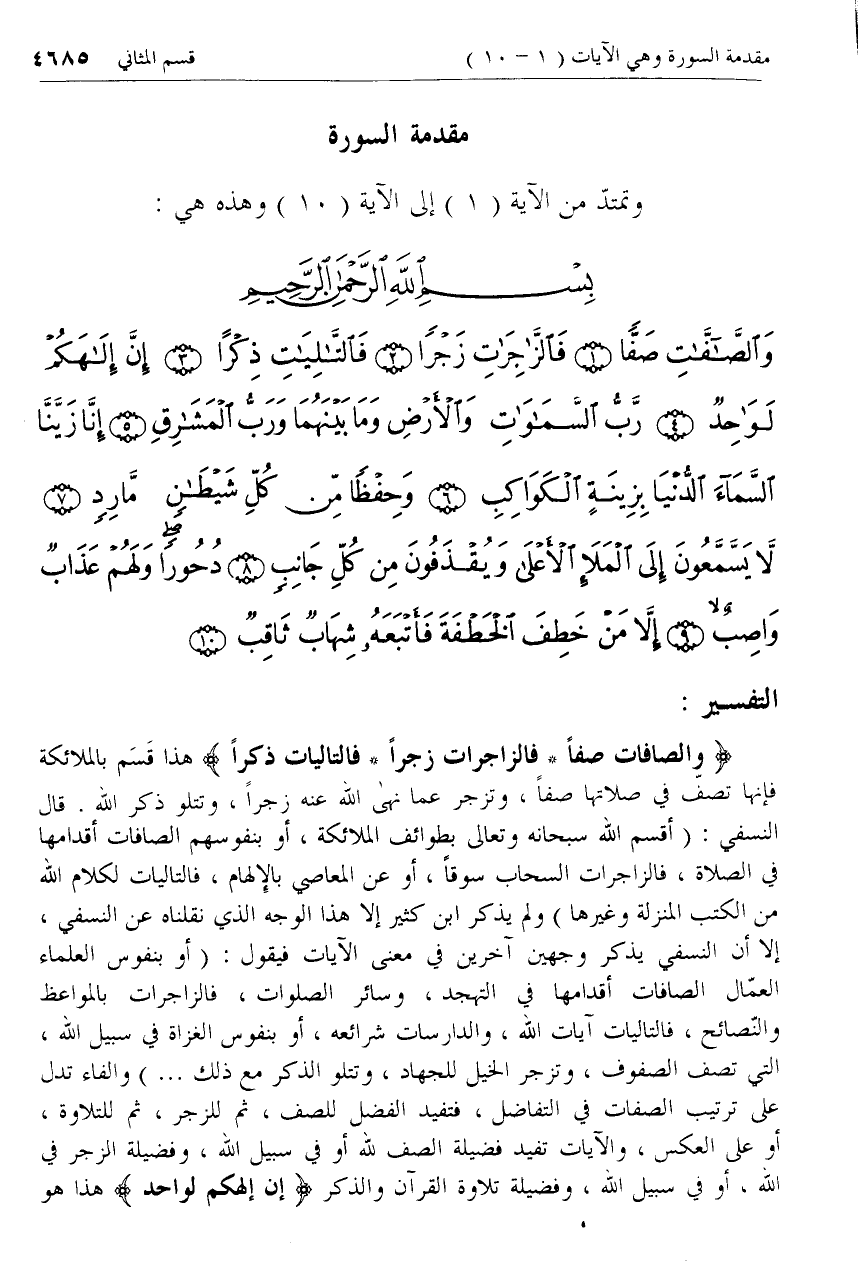 مقدمة السورة وهي الآيات ( ١ - ١٠ ) قسم المثاني ٤٦٨٥
مقدمة السورة
وتمتدّ من الآية ( ١ ) إلى الآية ( ١٠ ) وهذه هي :
بِسْمِ ٱللَّهِ ٱلرَّحْمَٰنِ ٱلرَّحِيمِ
وَٱلصَّـٰٓفَّـٰتِ صَفًّا ۝١ فَٱلزَّٰجِرَٰتِ زَجْرًا ۝٢ فَٱلتَّـٰلِيَـٰتِ ذِكْرًا ۝٣ إِنَّ إِلَـٰهَكُمْ
لَوَٰحِدٌ ۝٤ رَّبُّ ٱلسَّمَـٰوَٰتِ وَٱلْأَرْضِ وَمَا بَيْنَهُمَا وَرَبُّ ٱلْمَشَـٰرِقِ ۝٥ إِنَّا زَيَّنَّا
ٱلسَّمَآءَ ٱلدُّنْيَا بِزِينَةٍ ٱلْكَوَاكِبِ ۝٦ وَحِفْظًا مِّن كُلِّ شَيْطَـٰنٍ مَّارِدٍ ۝٧
لَّا يَسَّمَّعُونَ إِلَى ٱلْمَلَإِ ٱلْأَعْلَىٰ وَيُقْذَفُونَ مِن كُلِّ جَانِبٍ ۝٨ دُحُورًا ۖ وَلَهُمْ عَذَابٌ
وَاصِبٌ ۝٩ إِلَّا مَنْ خَطِفَ ٱلْخَطْفَةَ فَأَتْبَعَهُۥ شِهَابٌ ثَاقِبٌ ۝١٠
التفسير :
﴿ والصافات صفاً * فالزاجرات زجراً * فالتاليات ذكراً ﴾ هذا قَسَم بالملائكة
فإنها تصفّ في صلاتها صفاً ، وتزجر عما نهىٰ الله عنه زجراً ، وتتلو ذكر الله . قال
النسفي : ( أقسم الله سبحانه وتعالى بطوائف الملائكة ، أو بنفوسهم الصافات أقدامها
في الصلاة ، فالزاجرات السحاب سوقاً ، أو عن المعاصي بالإلهام ، فالتاليات لكلام الله
من الكتب المنزلة وغيرها ) ولم يذكر ابن كثير إلا هذا الوجه الذي نقلناه عن النسفي ،
إلا أن النسفي يذكر وجهين آخرين في معنى الآيات فيقول : ( أو بنفوس العلماء
العمّال الصافات أقدامها في التهجد ، وسائر الصلوات ، فالزاجرات بالمواعظ
والنّصائح ، فالتاليات آيات الله ، والدارسات شرائعه ، أو بنفوس الغزاة في سبيل الله ،
التي تصف الصفوف ، وتزجر الخيل للجهاد ، وتتلو الذكر مع ذلك ... ) والفاء تدل
على ترتيب الصفات في التفاضل ، فتفيد الفضل للصف ، ثم للزجر ، ثم للتلاوة ،
أو على العكس ، والآيات تفيد فضيلة الصف لله أو في سبيل الله ، وفضيلة الزجر في
الله ، أو في سبيل الله ، وفضيلة تلاوة القرآن والذكر ﴿ إن إلهكم لواحد ﴾ هذا هو